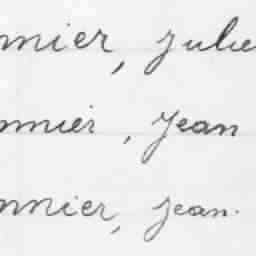 nnier, Julie
nnier, Jean
nnier, Jean.